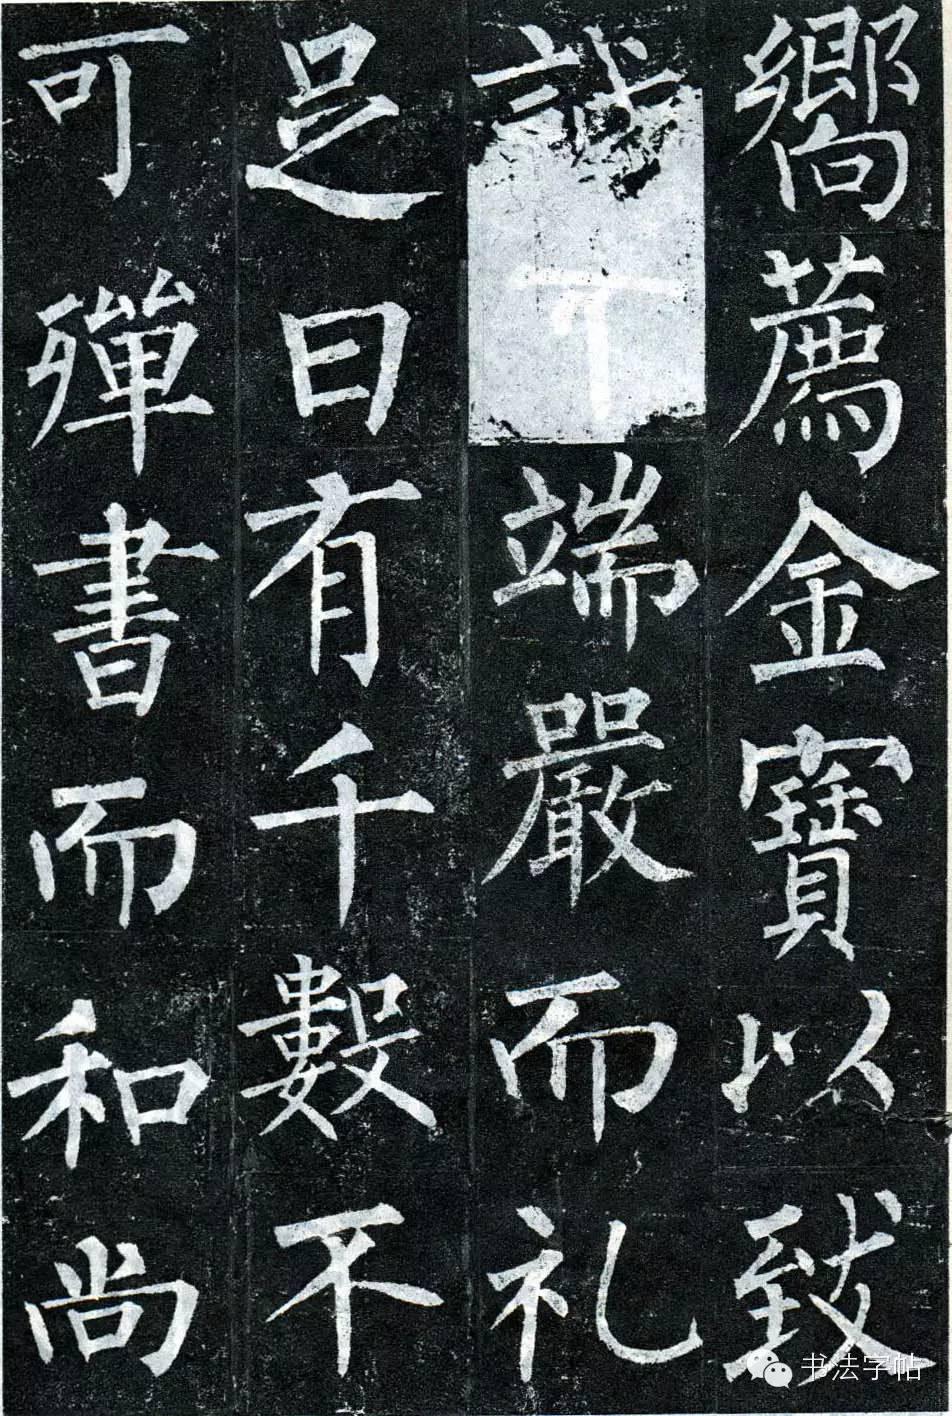 嚮薦金寶以致
誠丁端嚴而礼
足日有千數不
可殫書而和尚
书法字帖